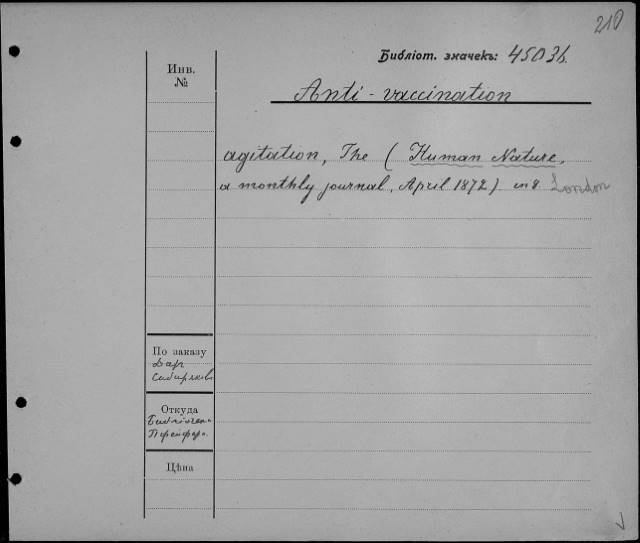 210
Библіот. значекъ: 4503b.
Инв. №
Anti-vaccination
agitation, The (Human Nature,
a monthly journal, April 1872) in 8. London
По заказу
Дар
Сибиряков
Откуда
Цѣна